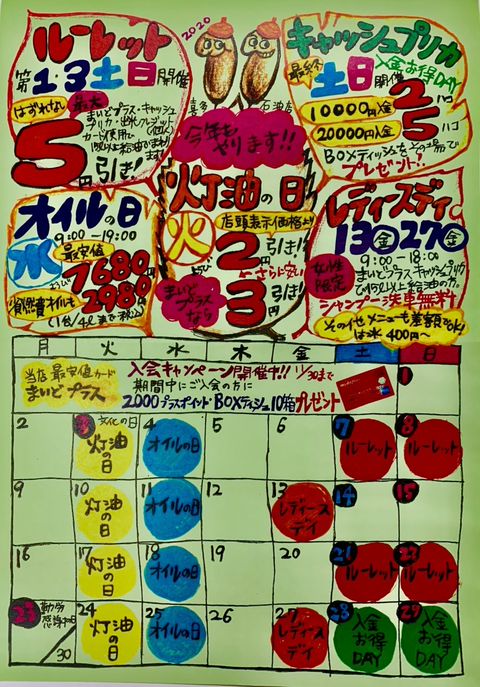 2020
ルーレット
第1・3土日開催
はずれなし
最大
5円引き!
キャッシュプリカ
最終土日開催
入金お得DAY
10000円入金 2ハコ
20000円入金 5ハコ
BOXティッシュをその場で
プレゼント!
喜多
石油店
今年も
やります!!
灯油の日
火
店頭表示価格より
2円引き!
さらに
まいど
プラス
なら
3円引き!
オイルの日
9:00~19:00
水
最安値
7680円
省燃費オイルも
2980円
レディースデイ
13金27金
9:00~18:00
女性
限定
まいどプラス・キャッシュプリカ
シャンプー洗車無料
その他メニューも差額でOK!
は水400円~
月 火 水 木 金 土 日
当店最安値カード
まいどプラス
入会キャンペーン開催中!! 11/30まで
期間中にご入会の方に
2,000プラスポイント・BOXティッシュ10箱プレゼント
1
2 3 文化の日 4 5 6 7 8
灯油の日 オイルの日 ルーレット ルーレット
9 10 11 12 13 14 15
灯油の日 オイルの日 レディースデイ
16 17 18 19 20 21 22
灯油の日 オイルの日 ルーレット ルーレット
23 勤労感謝の日 24 25 26 27 28 29
30 灯油の日 オイルの日 レディースデイ 入金お得DAY 入金お得DAY